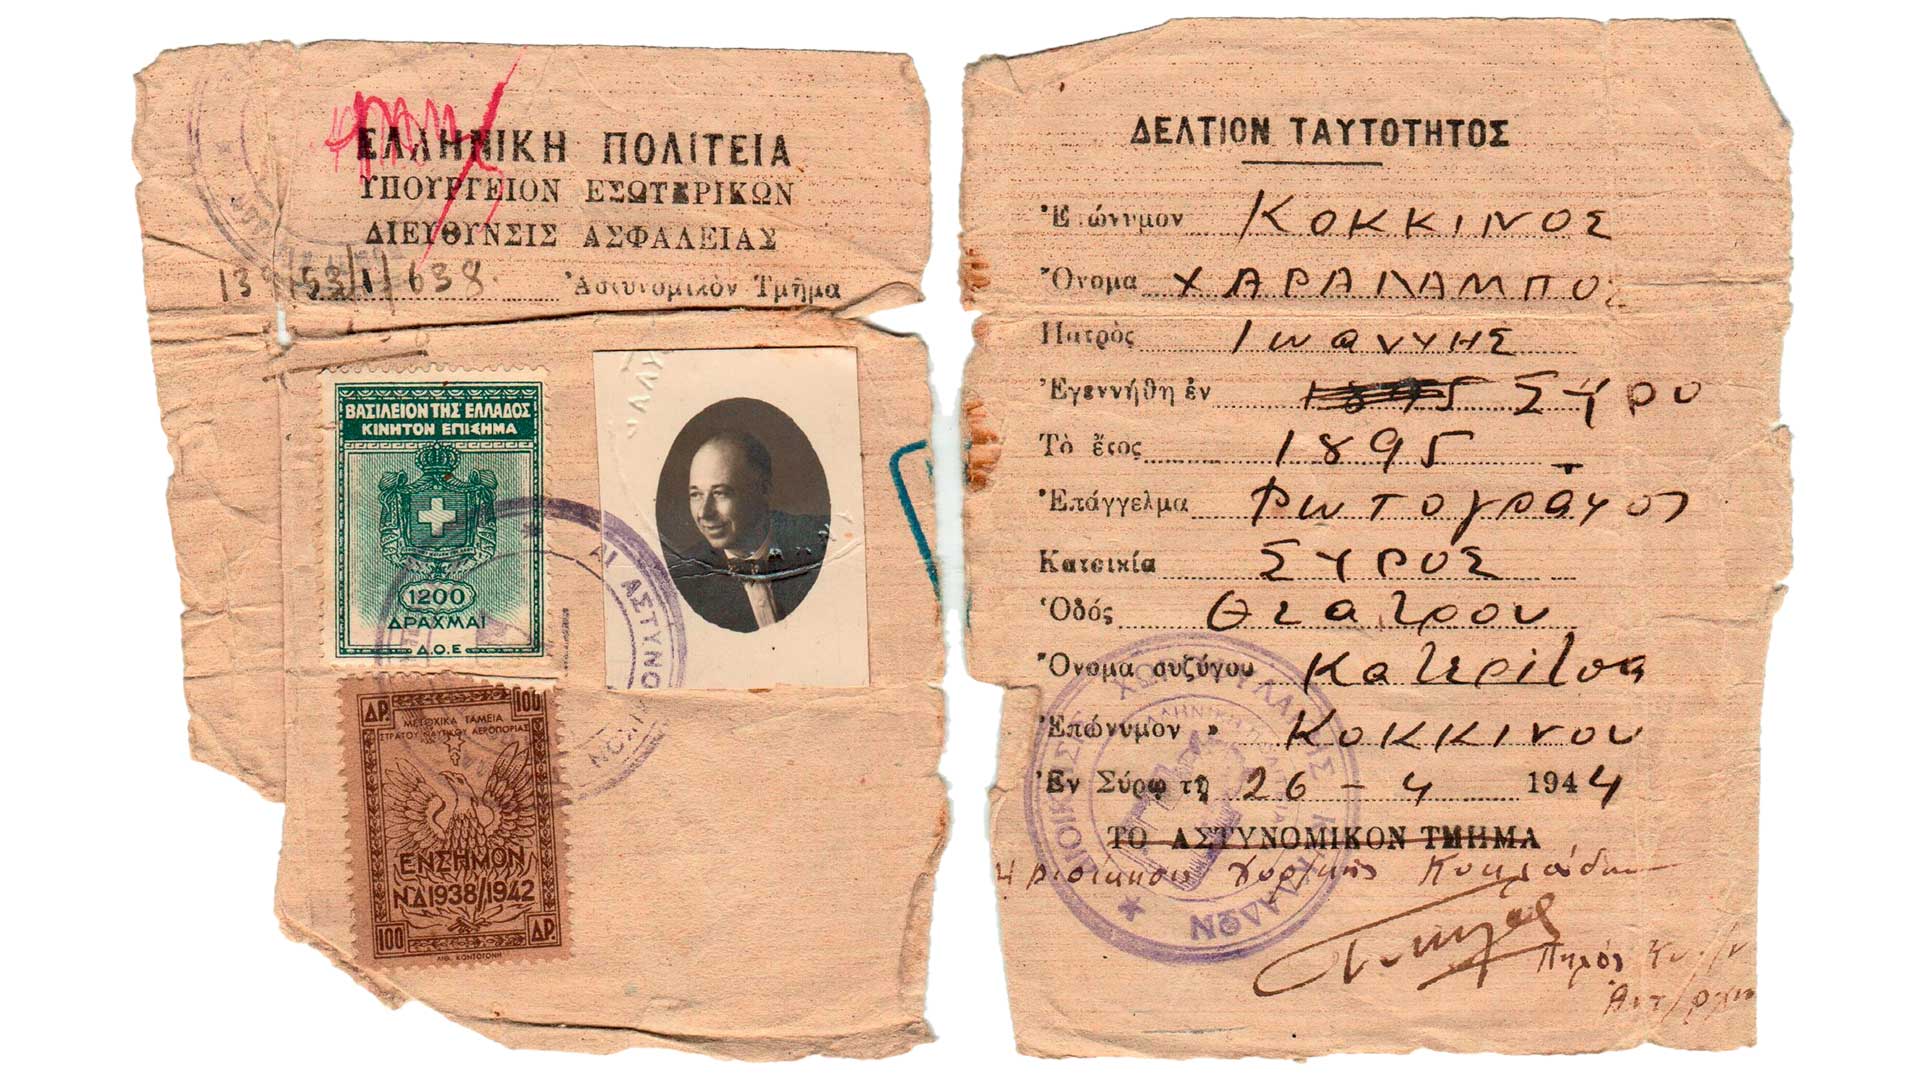 ΕΛΛΗΝΙΚΗ ΠΟΛΙΤΕΙΑ
ΥΠΟΥΡΓΕΙΟΝ ΕΣΩΤΕΡΙΚΩΝ
ΔΙΕΥΘΥΝΣΙΣ ΑΣΦΑΛΕΙΑΣ
638. Ἀστυνομικὸν Τμῆμα
ΒΑΣΙΛΕΙΟΝ ΤΗΣ ΕΛΛΑΔΟΣ
ΚΙΝΗΤΟΝ ΕΠΙΣΗΜΑ
1200
ΔΡΑΧΜΑΙ
Δ.Ο.Ε
ΔΡ. 100
ΜΕΤΟΧΙΚΑ ΤΑΜΕΙΑ
ΣΤΡΑΤΟΥ ΝΑΥΤΙΚΟΥ ΑΕΡΟΠΟΡΙΑΣ
ΕΝΣΗΜΟΝ
ΝΔ 1938/1942
100 ΔΡ.
ΛΙΘ. ΚΟΝΤΟΓΟΝΗ
ΔΕΛΤΙΟΝ ΤΑΥΤΟΤΗΤΟΣ
Ἐπώνυμον ΚΟΚΚΙΝΟΣ
Ὄνομα ΧΑΡΑΛΑΜΠΟΣ
Πατρὸς Ιωαννης
Ἐγεννήθη ἐν 1895 ΣΥΡΟ
Τὸ ἔτος 1895
Ἐπάγγελμα Φωτογραφος
Κατοικία ΣΥΡΟΣ
Ὁδός Θεατρου
Ὄνομα συζύγου Κατερίτσα
Ἐπώνυμον » ΚΟΚΚΙΝΟΥ
Ἐν Σύρῳ τῇ 26 - 4 1944
ΤΟ ΑΣΤΥΝΟΜΙΚΟΝ ΤΜΗΜΑ
ΔΙΟΙΚΗΣΙΣ ΧΩΡΟΦΥΛΑΚΗΣ ΚΥΚΛΑΔΩΝ